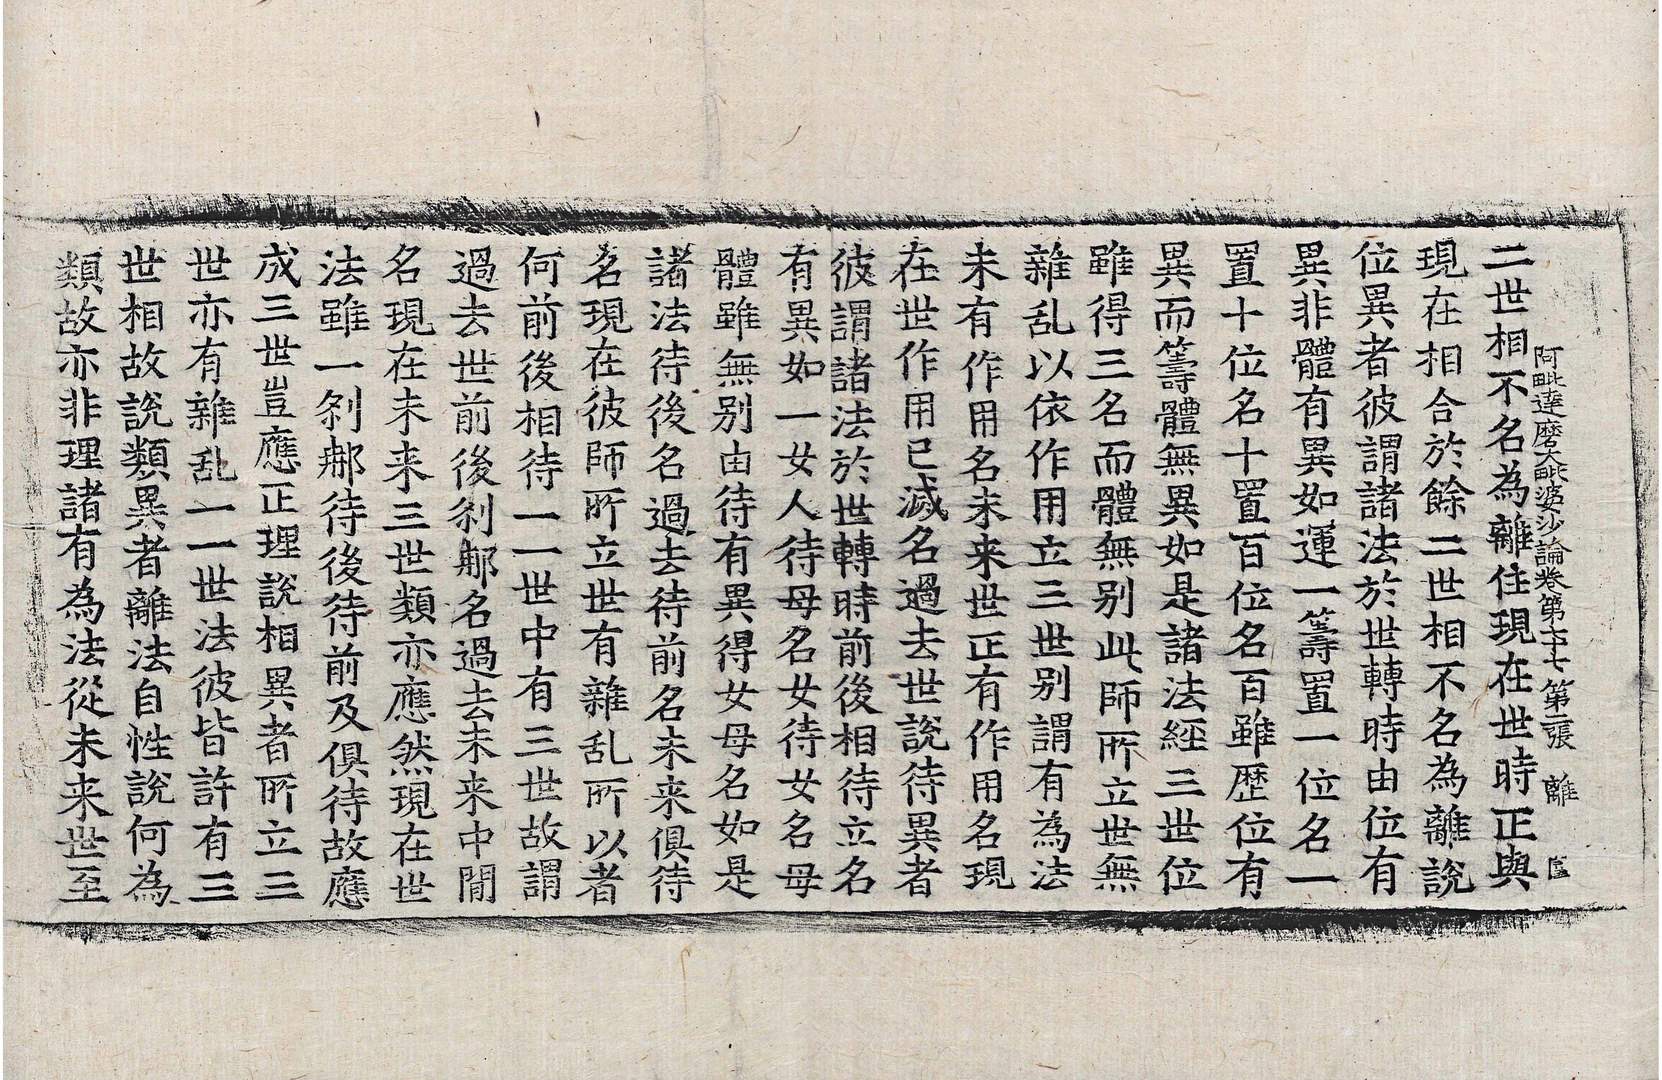 阿毗達磨大毗婆沙論卷第七十七 第二張 離
二世相不名為離住現在世時正與
現在相合於餘二世相不名為離說
位異者彼謂諸法於世轉時由位有
異非體有異如運一籌置一位名一
置十位名十置百位名百雖歷位有
異而籌體無異如是諸法經三世位
雖得三名而體無别此師所立世無
雜乱以依作用立三世别謂有為法
未有作用名未来世正有作用名現
在世作用已滅名過去世說待異者
彼謂諸法於世轉時前後相待立名
有異如一女人待母名女待女名母
體雖無别由待有異得女母名如是
諸法待後名過去待前名未来俱待
名現在彼師所立世有雜乱所以者
何前後相待一一世中有三世故謂
過去世前後剎那名過去未来中間
名現在未来三世類亦應然現在世
法雖一剎那待後待前及俱待故應
成三世豈應正理說相異者所立三
世亦有雜乱一一世法彼皆許有三
世相故說類異者離法自性說何為
類故亦非理諸有為法從未来世至